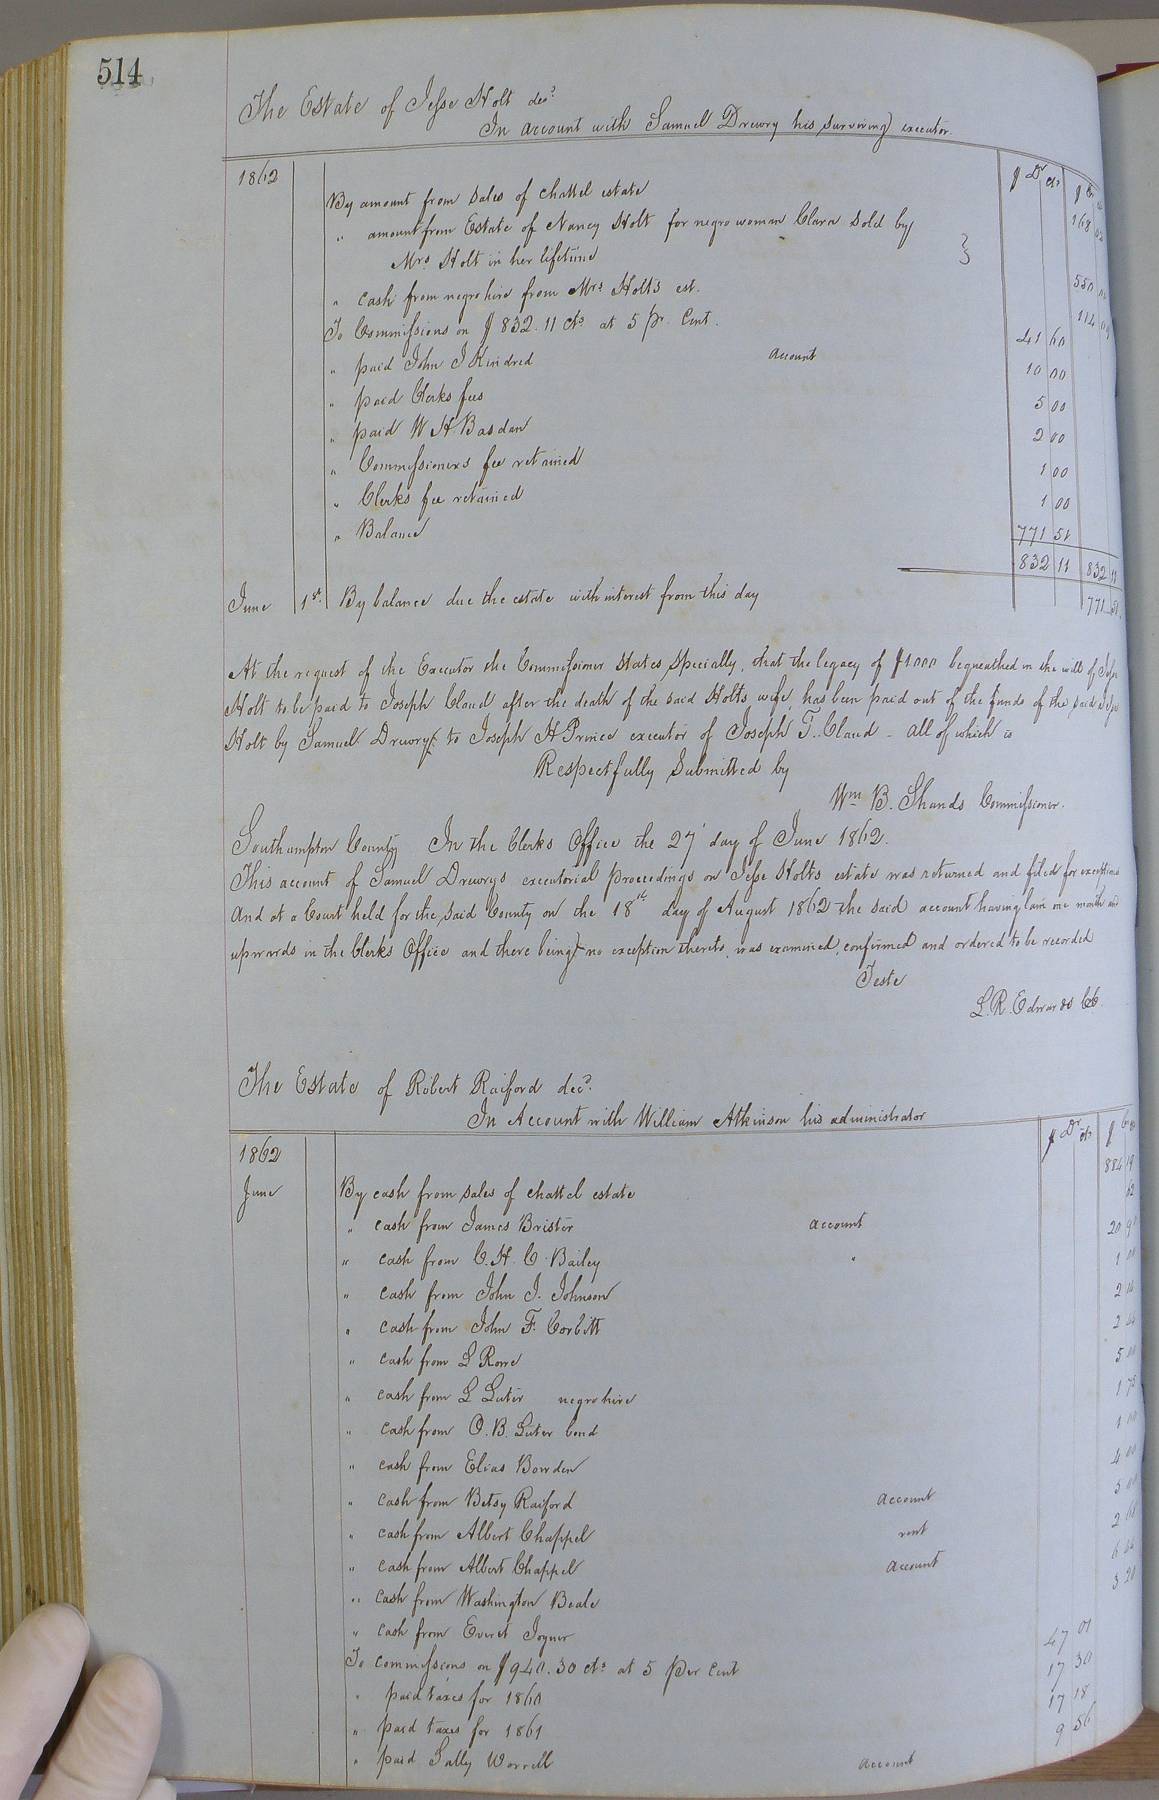 514
The Estate of Jesse Holt decd
In account with Samuel Drewry his surviving executor.
1862 $ Dr cts $ Cr cts
By amount from sales of chattel estate 168 02
" amount from Estate of Nancy Holt for negro woman Clara sold by
Mrs Holt in her lifetime } 550 00
" cash from negro hire from Mrs Holts est. 114 09
To Commissions on $832.11 cts at 5 pr. Cent. 41 60
" paid John J Kindred account 10 00
" paid Clerks fees 5 00
" paid W H Basdan 2 00
" Commissioners fee retained 1 00
" Clerks fee retained 1 00
" Balance 771 51
832 11 832 11
June 1st. By balance due the estate with interest from this day 771 51.
At the request of the Executor the Commissioner states specially, that the legacy of $1000 bequeathed in the will of Jesse
Holt to be paid to Joseph Claud after the death of the said Holts wife, has been paid out of the funds of the said Jesse
Holt by Samuel Drewry to Joseph H Prince executor of Joseph T. Claud - all of which is
Respectfully Submitted by
Wm B. Shands Commissioner.
Southampton County In the Clerks Office the 27 day of June 1862.
This account of Samuel Drewrys executorial proceedings on Jesse Holts estate was returned and filed for exceptions
And at a Court held for the said County on the 18th day of August 1862 the said account having lain one month and
upwards in the Clerks Office and there being no exception thereto, was examined, confirmed and ordered to be recorded
Teste
L. R. Edwards CC.
The Estate of Robert Raiford decd.
In Account with William Atkinson his administrator
1862 $ Dr cts $ Cr cts
June By cash from sales of chattel estate 884 19
" cash from James Brister account 62
" cash from C. H. C. Bailey " 20 90
" cash from John J. Johnson 1 00
" cash from John F. Corbitt
" cash from L Rowe
" cash from L Luter negro hire 5 00
" cash from O. B. Luter bond 1 75
" cash from Elias Bowden 1 00
" cash from Betsy Raiford account 4 00
" cash from Albert Chappel rent 5 00
" cash from Albert Chappel account
" cash from Washington Beale
" cash from Everet Joyner 3 20
To commissions on $940.30 cts at 5 per cent 47 01
" paid taxes for 1860 17 30
" paid taxes for 1861 17 18
" paid Sally Worrell account 9 56